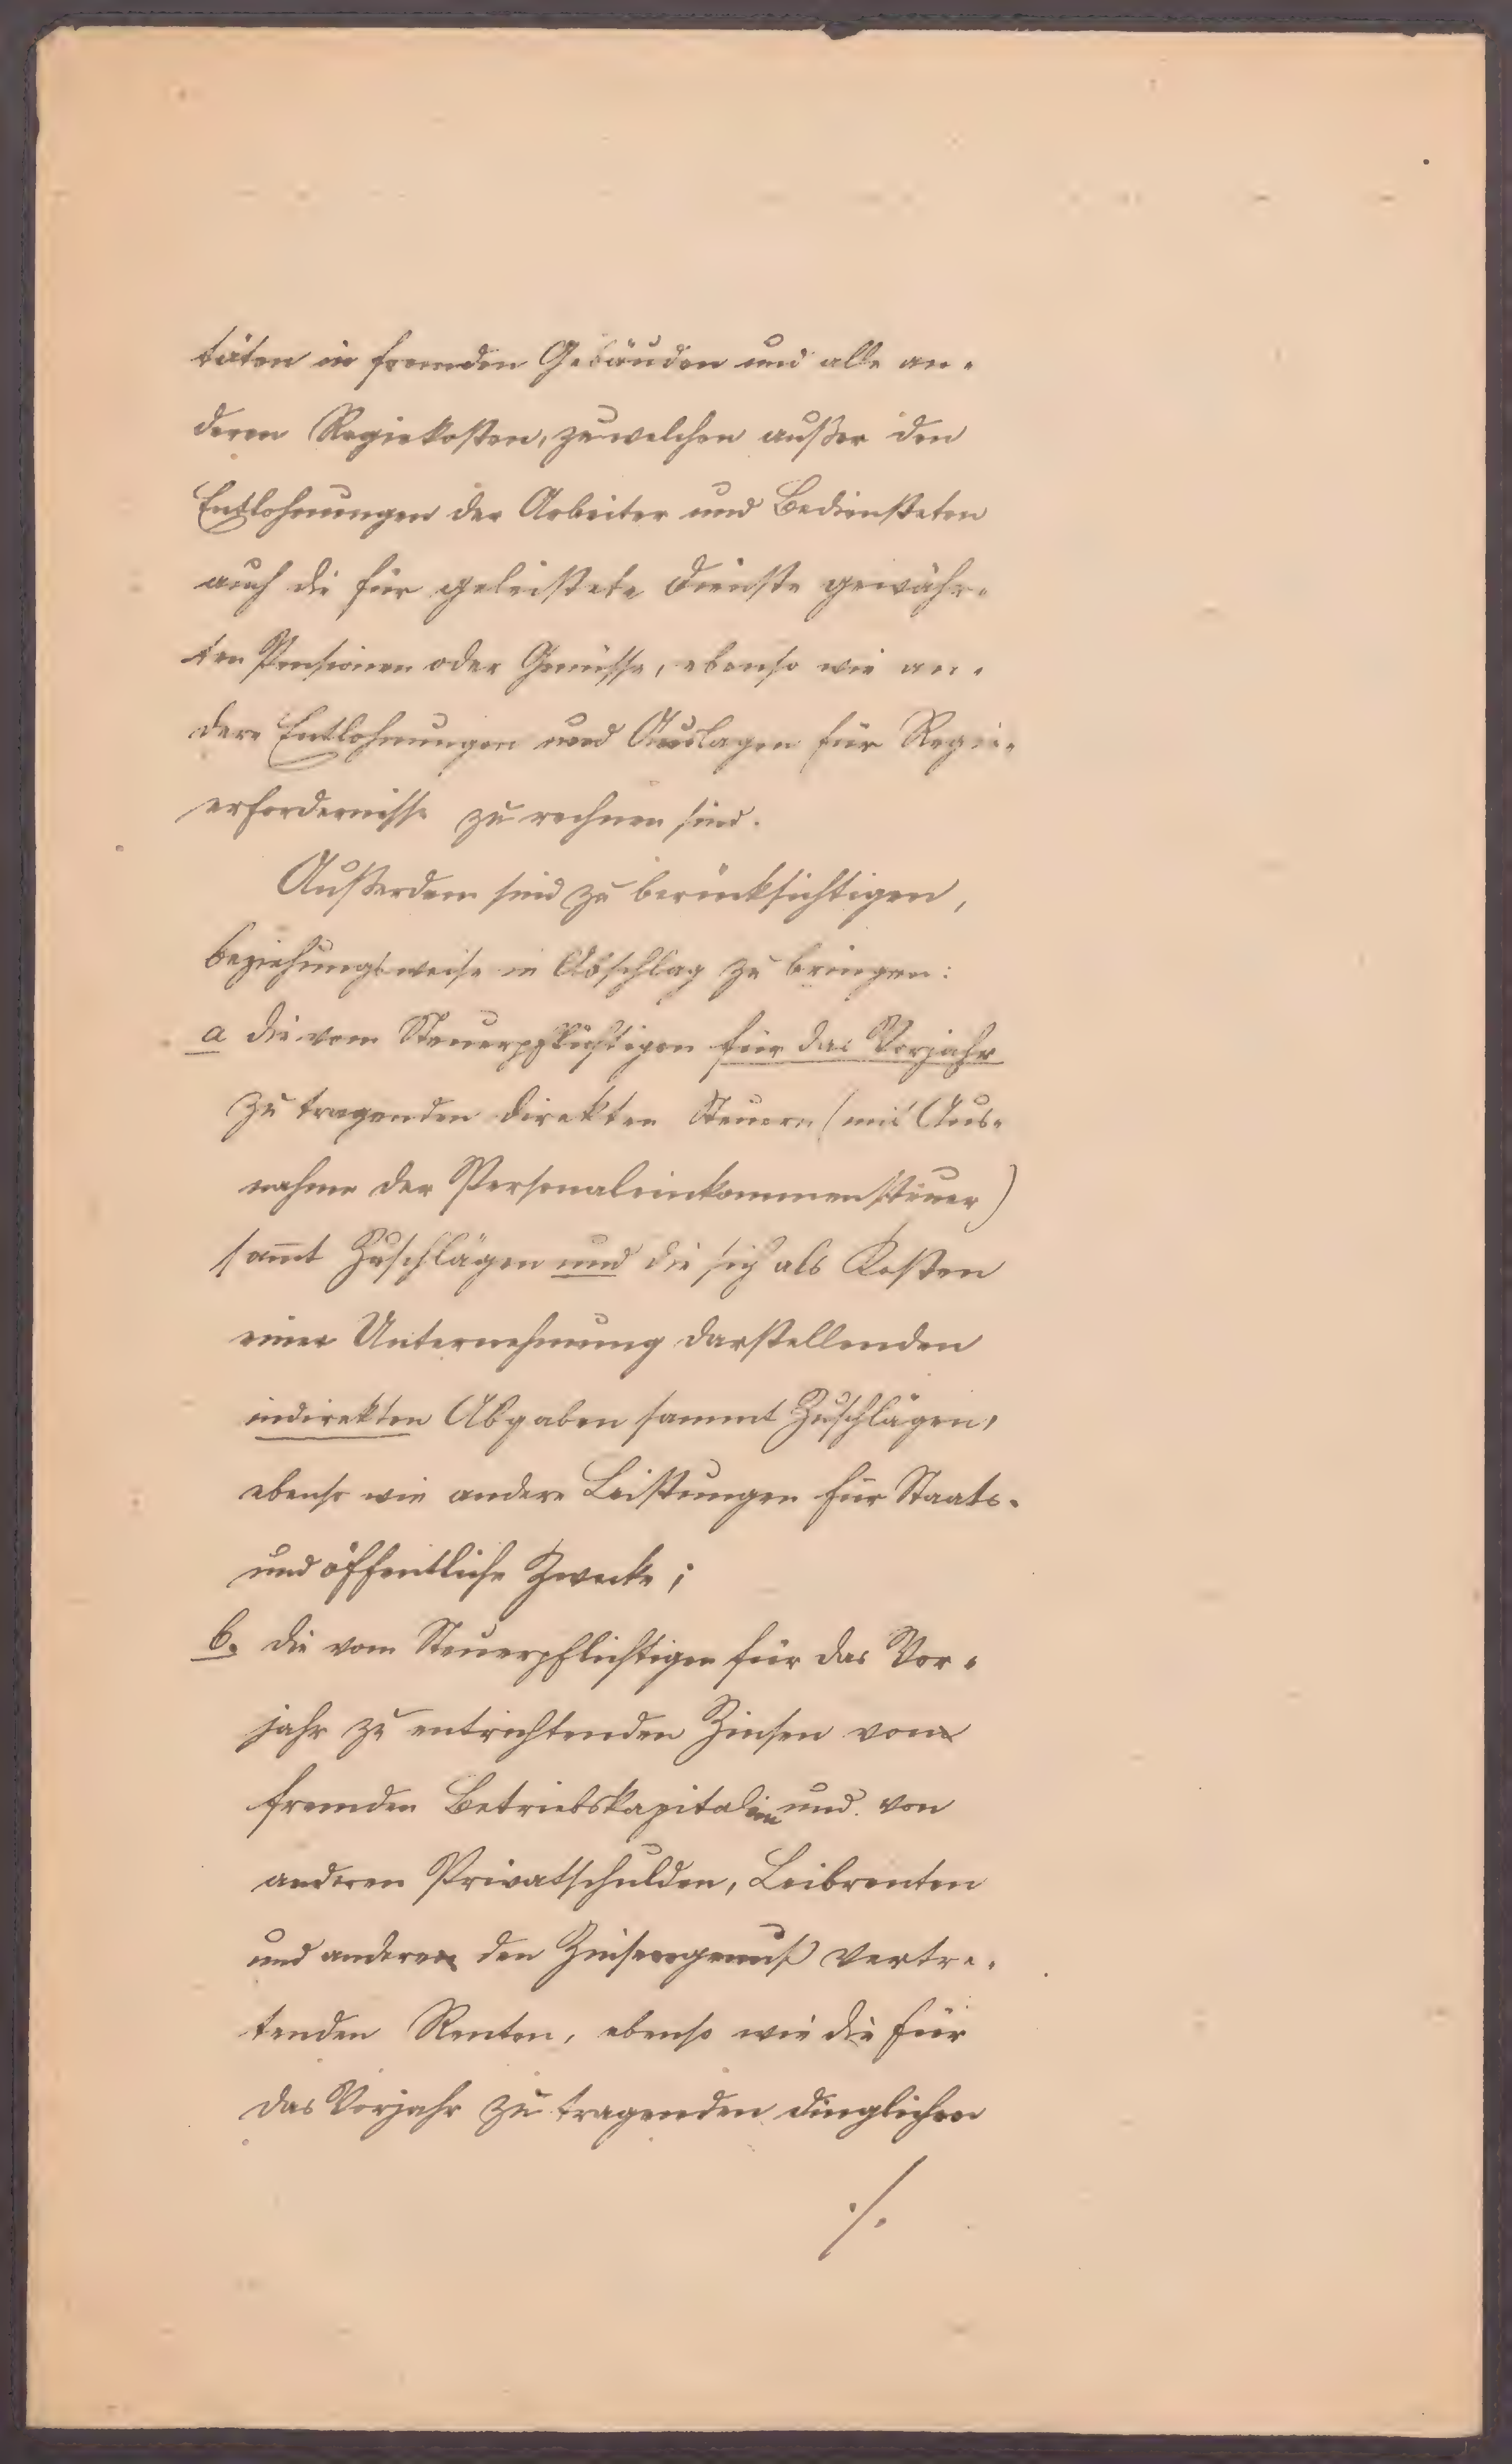 täten in fremden Gebäuden und alle an-
deren Regiekosten, zu welchen außer den
Entlohnungen der Arbeiter und Bediensteten
auch die für geleistete Dienste gewähr-
ten Pensionen oder Genüsse, ebenso wie an-
dere Entlohnungen und Auslagen für Regie-
erfordernisse zu rechnen sind.
Außerdem sind zu berücksichtigen,
beziehungsweise in Abschlag zu bringen:
a die vom Steuerpflichtigen für das Vorjahr
zu tragenden direkten Steuern (mit Aus-
nahme der Personaleinkommensteuer)
sam̄t Zuschlägen und die sich als Kosten
einer Unternehmung darstellenden
indirekten Abgaben sammt Zuschlägen,
ebenso wie andere Leistungen für Staats-
und öffentliche Zwecke;
b. die vom Steuerpflichtigen für das Vor-
jahr zu entrichtenden Zinsen von
fremden Betriebskapitalien und von
anderen Privatschulden, Leibrenten
und anderen den Zinsengenuß vertre-
tenden Renten, ebenso wie die für
das Vorjahr zu tragenden dinglichen
./.